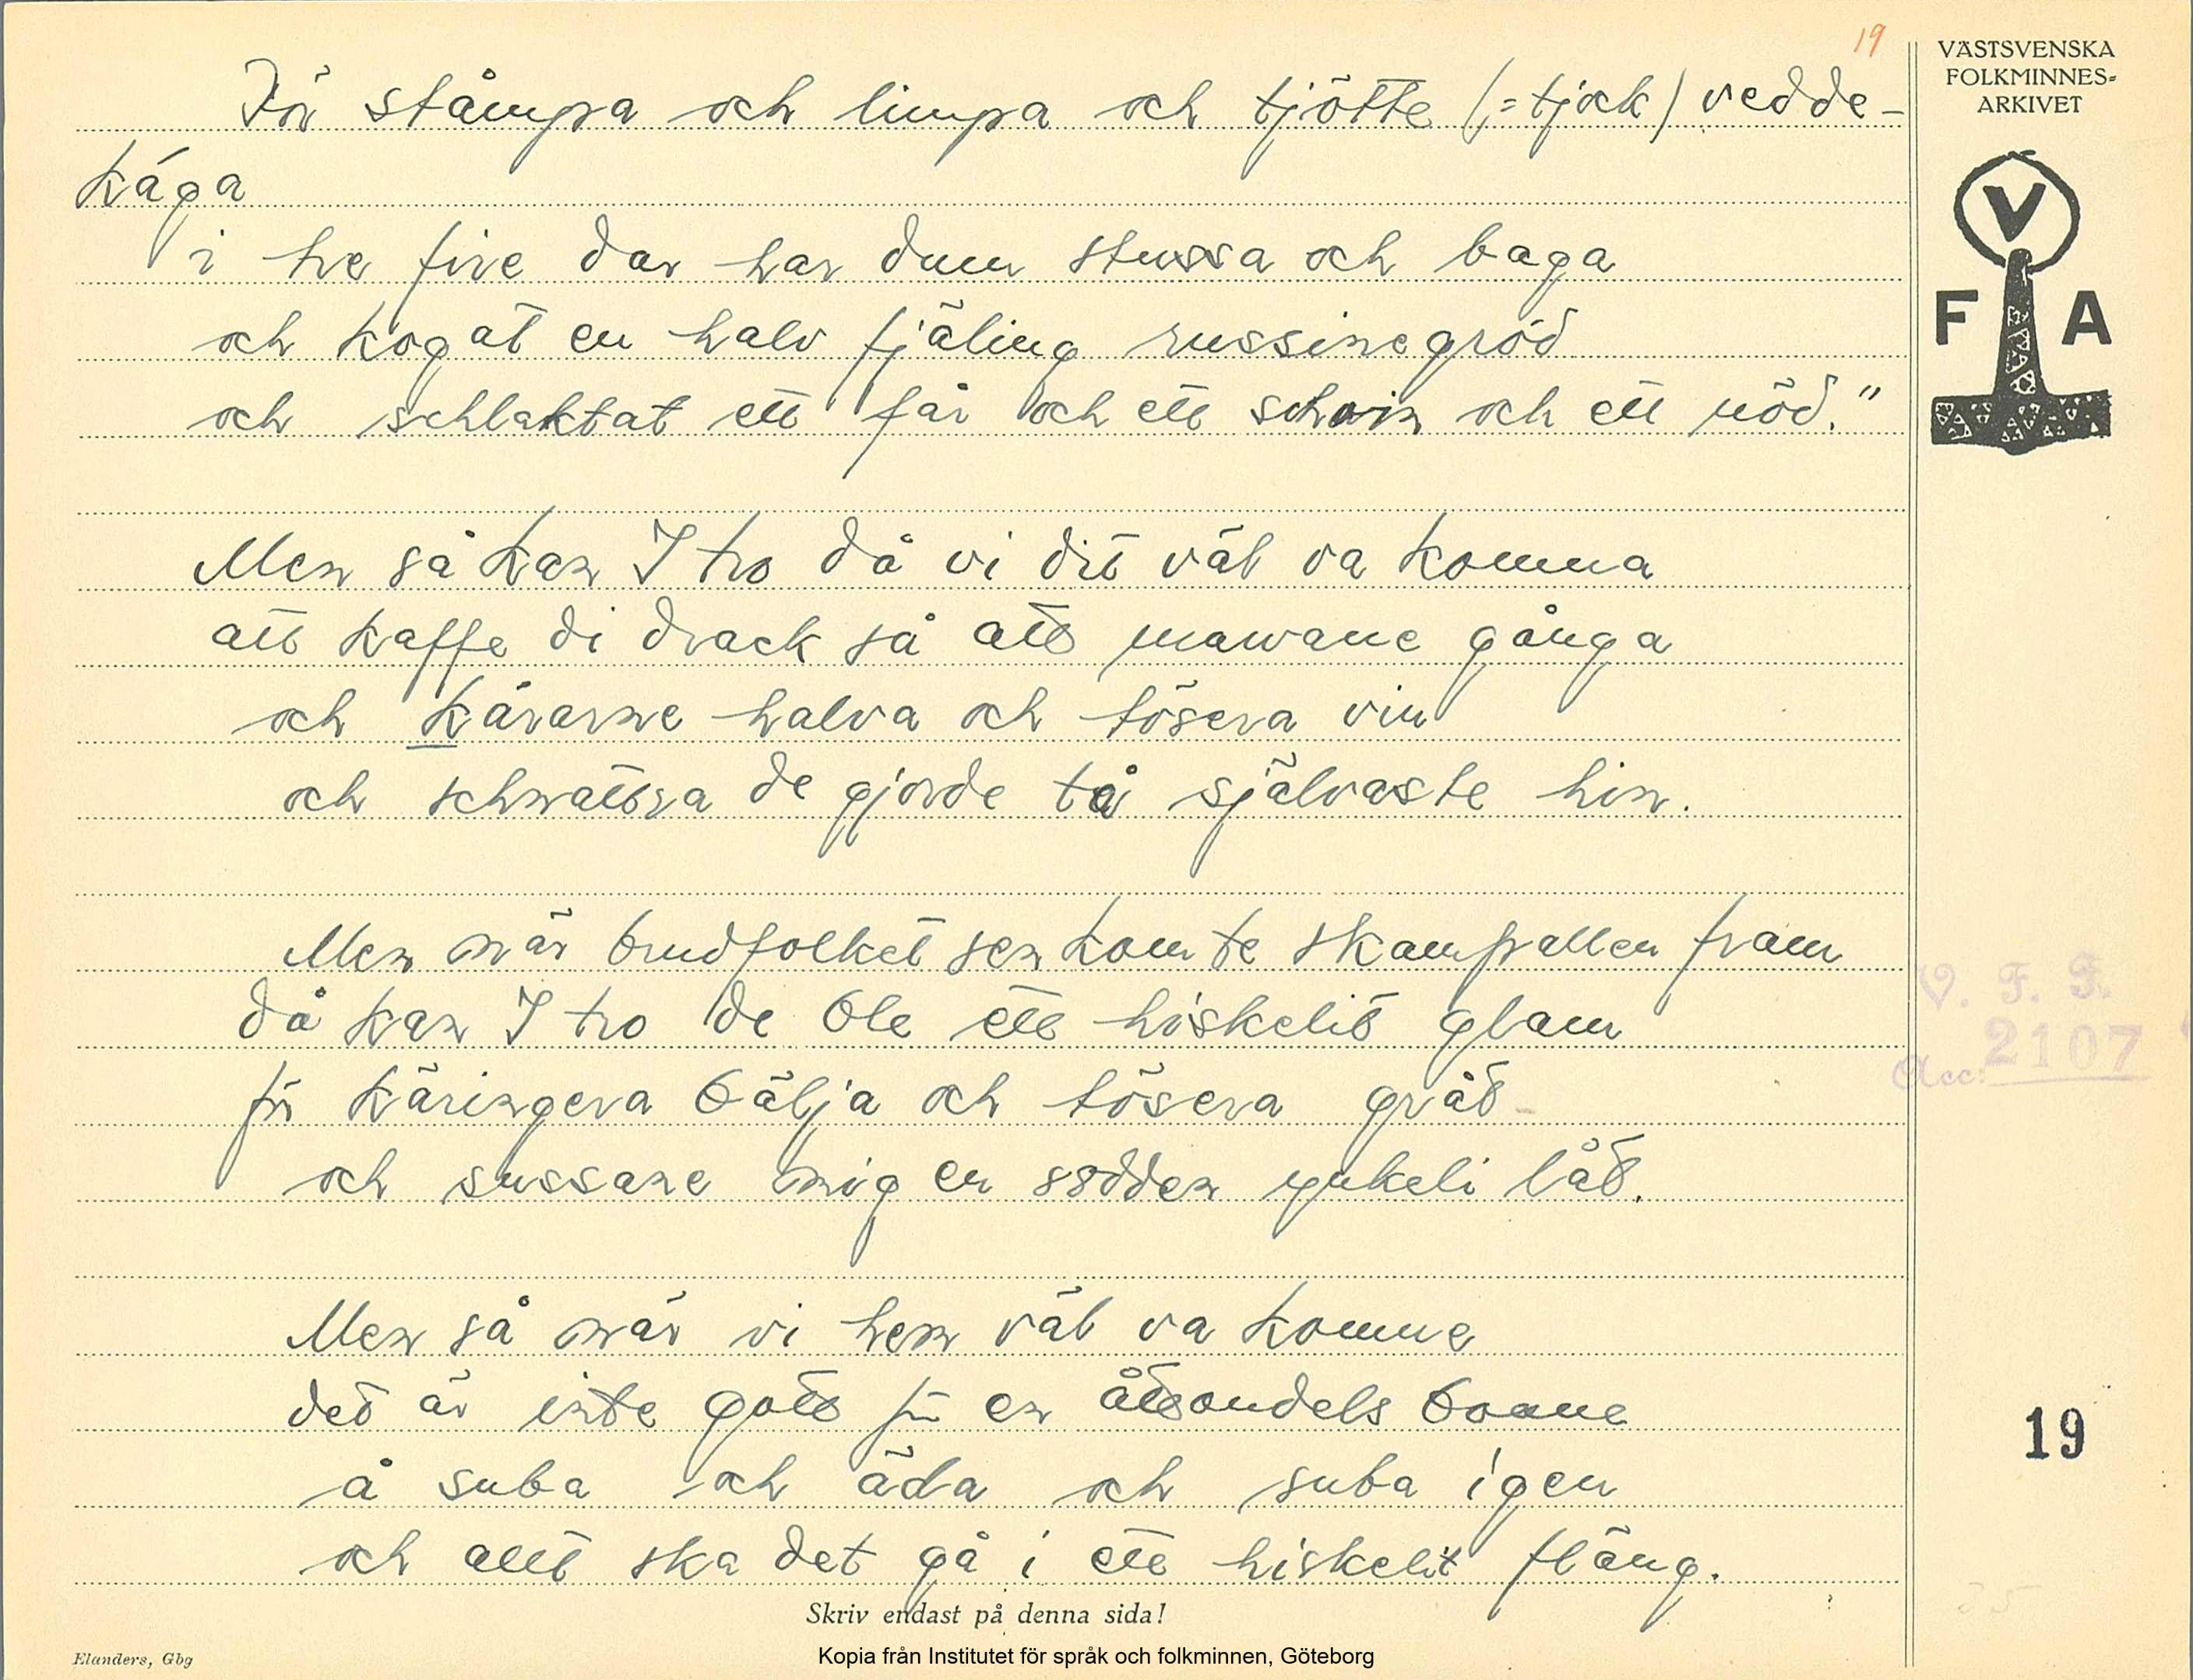 19
VÄSTSVENSKA
FOLKMINNES-
ARKIVET
V
F A
För stämpa och limpa och tjötte (= tjock) vedde-
kága
i tre fire dar har dum stussa och baga
och kogat en halv fjäling russinegröd
och schlaktat ett får och ett schwin och ett nöd."
Men så kan I tro då vi dit väl va komma
att kaffe di drack så att mawane gånga
och kárarne halva och tösera vin
och schnattra de gjorde tå självaste hin.
Men när brudfolket sen kom te skampallen fram
då kan I tro de ble ett hiskelit glam
för käringera bälja och tösera gråt
och sussane mig en södden ynkeli låt.
Men så när vi hem väl va komme
det är inte gott för en åttondels bonne
å suba och äda och suba igen
och allt ska det gå i ett hiskelit fläng.
V. F. F.
Acc: 2107
19
Skriv endast på denna sida!
Elanders, Gbg
Kopia från Institutet för språk och folkminnen, Göteborg